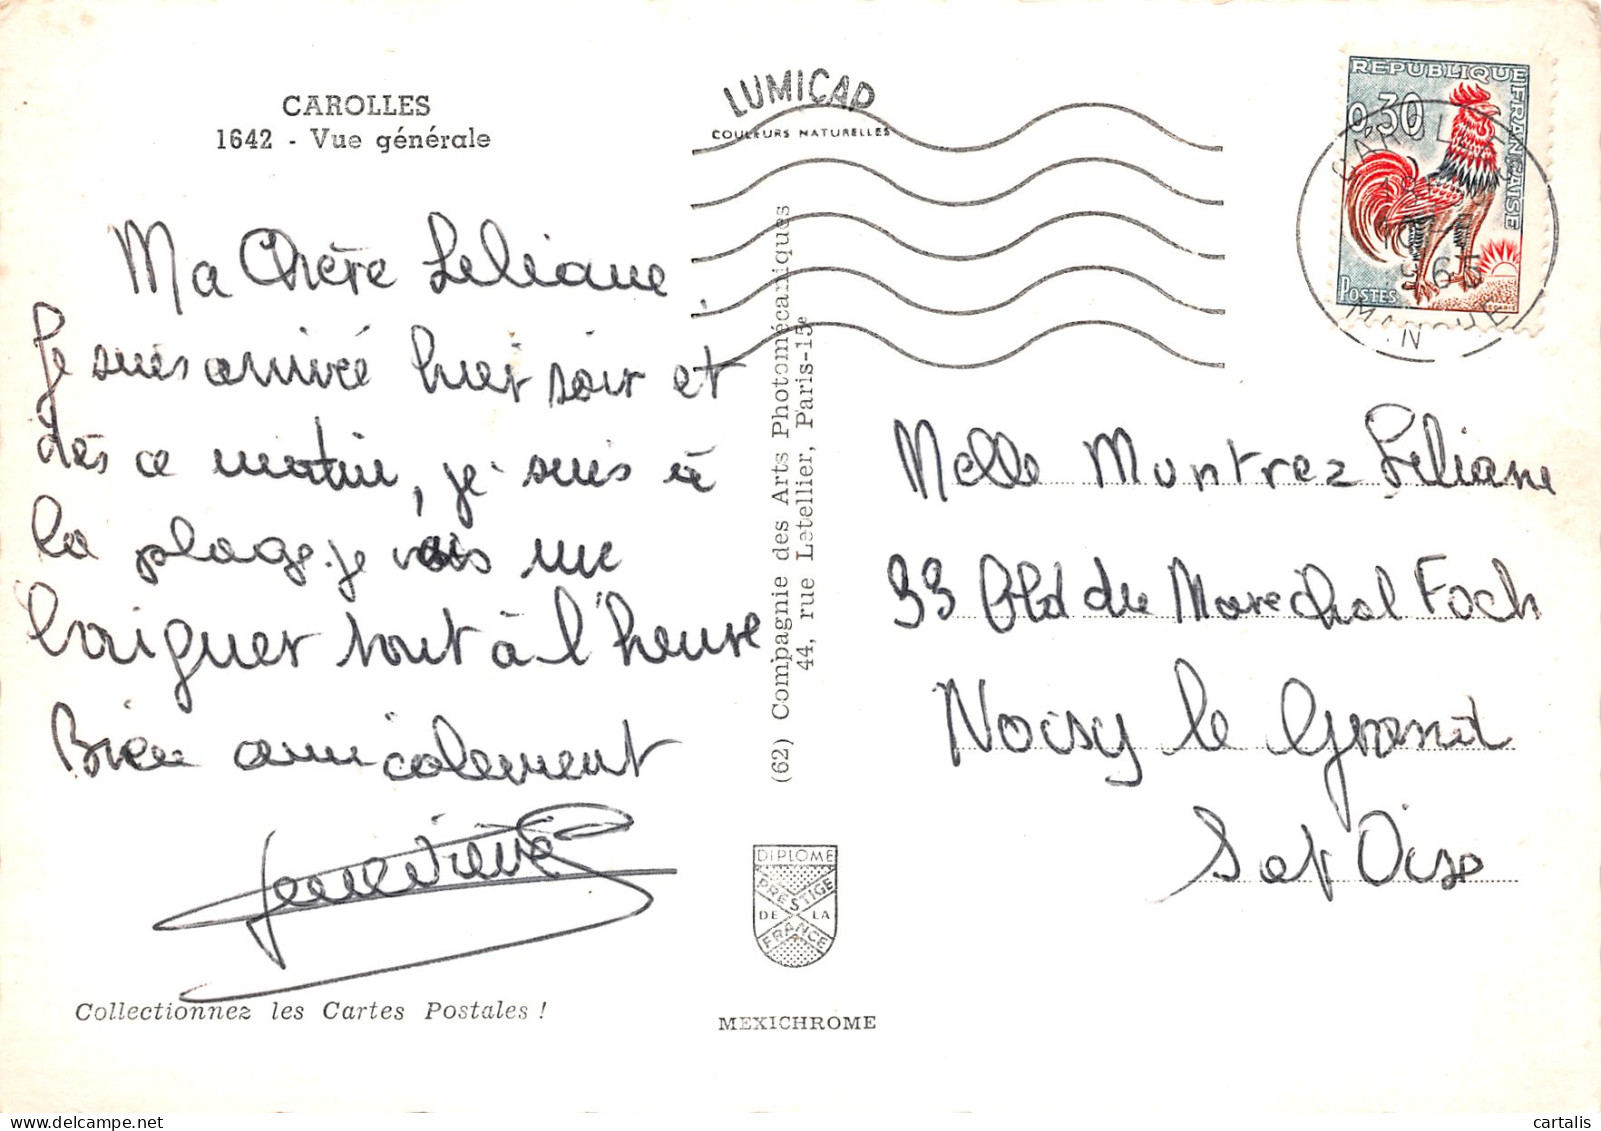 CAROLLES
1642 - Vue générale
LUMICAP
COULEURS NATURELLES
REPUBLIQUE FRANÇAISE
0,30
POSTES
CAROLLES
MANCHE
Ma Chère Liliane.
Je suis arrivée hier soir et
dès ce matin, je suis à
la plage. je vais me
baigner tout à l'heure
Bien amicalement
Geneviève
(62) Compagnie des Arts Photomécaniques
44, rue Letellier, Paris-15e
Melle Muntrez Liliane
33 Bld du Marechal Foch
Noisy le Grand
S et Oise
DIPLOME
PRESTIGE
DE LA
FRANCE
Collectionnez les Cartes Postales !
MEXICHROME
cartalis
www.delcampe.net